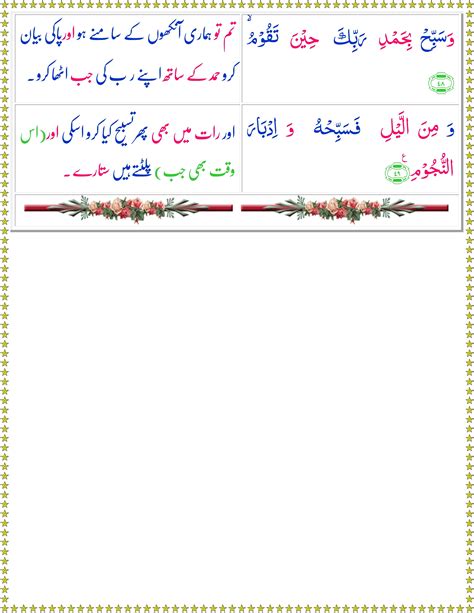 وَسَبِّحْ بِحَمْدِ رَبِّكَ حِیْنَ تَقُوْمُۙ
﴿٤٨﴾
تم تو ہماری آنکھوں کے سامنے ہو اور پاکی بیان
کرو حمد کے ساتھ اپنے رب کی جب اٹھا کرو۔
وَ مِنَ الَّیْلِ فَسَبِّحْهُ وَ اِدْبَارَ
النُّجُوْمِ۠ ﴿٤٩﴾ ع
اور رات میں بھی پھر تسبیح کیا کرو اسکی اور (اس
وقت بھی جب) پلٹتے ہیں ستارے۔